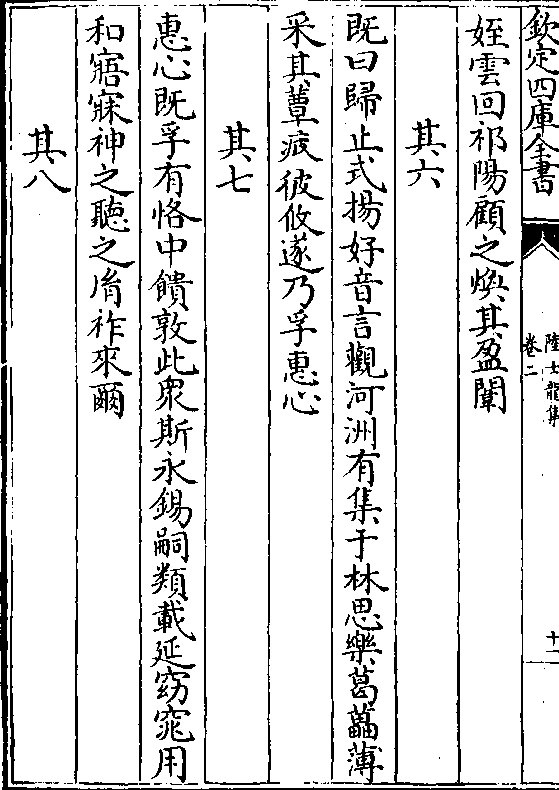 欽定四庫全書
陸士龍集
卷二
十一
姪雲回祁陽顧之煥其盈闈
其六
既曰歸止式揚好音言觀河洲有集于林思樂葛藟薄
采其蕈疲彼攸遂乃孚惠心
其七
惠心既孚有恪中饋敦此衆斯永錫嗣類載延窈窕用
和寤寐神之聽之胥祚來爾
其八